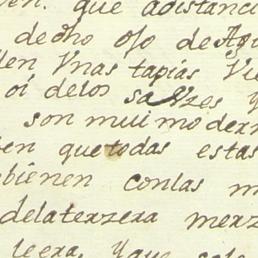 en. que adistanci
de dho ojo de Agu
en Vnas tapias Vie
oi delos sauzes y
son mui modern
en que todas estas
bienen conlas m
delaterzera merz
leera, Yque